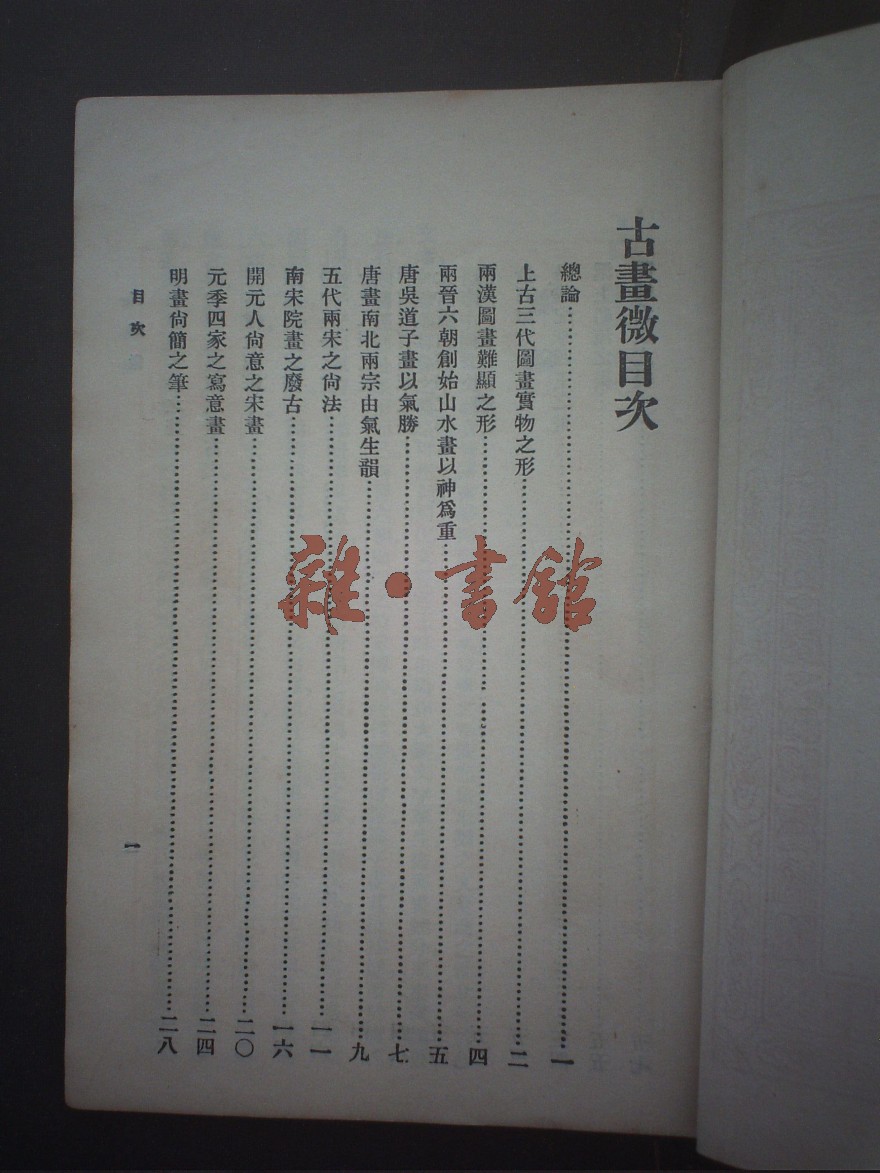 古畫微目次
總論⋯⋯⋯⋯⋯⋯⋯⋯⋯⋯一
上古三代圖畫實物之形⋯⋯⋯⋯⋯⋯⋯⋯二
兩漢圖畫難顯之形⋯⋯⋯⋯⋯⋯⋯⋯四
兩晉六朝創始山水畫以神爲重⋯⋯⋯⋯⋯⋯五
唐吳道子畫以氣勝⋯⋯⋯⋯⋯⋯⋯⋯七
唐畫南北兩宗由氣生韻⋯⋯⋯⋯⋯⋯⋯⋯九
五代兩宋之尙法⋯⋯⋯⋯⋯⋯⋯⋯一一
南宋院畫之廢古⋯⋯⋯⋯⋯⋯⋯⋯一六
開元人尙意之宋畫⋯⋯⋯⋯⋯⋯⋯⋯二〇
元季四家之寫意畫⋯⋯⋯⋯⋯⋯⋯⋯二四
明畫尙簡之筆⋯⋯⋯⋯⋯⋯⋯⋯二八
目次
一
雜·書館